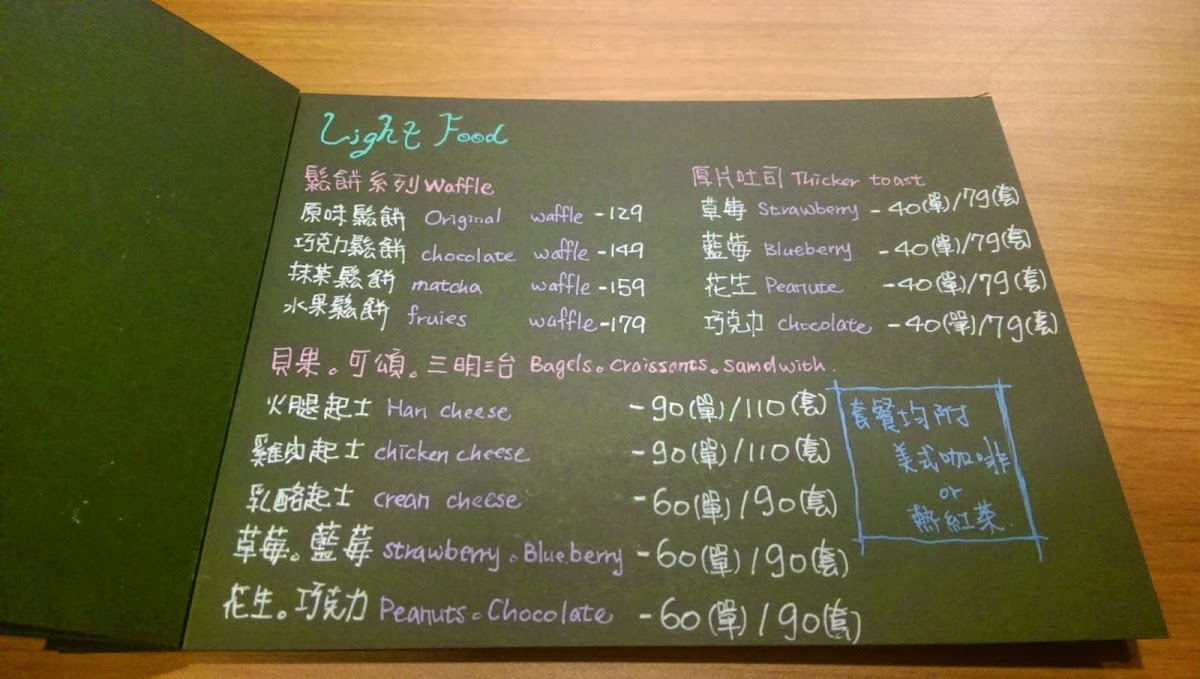 Light Food
鬆餅系列 Waffle
原味鬆餅 Original waffle -129
巧克力鬆餅 chocolate waffle -149
抹茶鬆餅 matcha waffle -159
水果鬆餅 fruies waffle -179
厚片吐司 Thicker toast
草莓 Strawberry -40(單)/79(套)
藍莓 Blueberry -40(單)/79(套)
花生 Peanute -40(單)/79(套)
巧克力 chocolate -40(單)/79(套)
貝果。可頌。三明治 Bagels。Craissants。Samdwith.
火腿起士 Han cheese -90(單)/110(套)
雞肉起士 chicken cheese -90(單)/110(套)
乳酪起士 crean cheese -60(單)/90(套)
草莓。藍莓 strawberry。Blueberry -60(單)/90(套)
花生。巧克力 Peanuts。Chocolate -60(單)/90(套)
套餐均附
美式咖啡
or
熱紅茶.